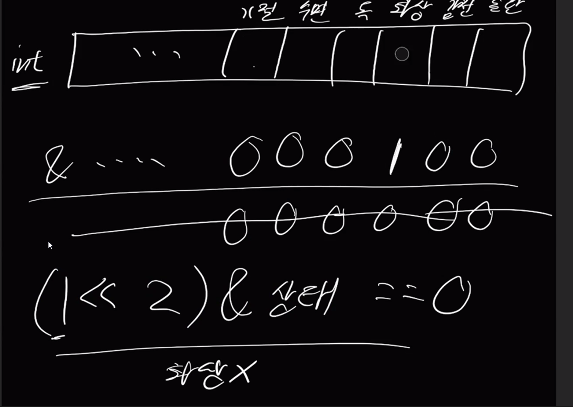 기절 수면 독 화상 감전 혼란
int ...
& .... 0 0 0 1 0 0
0 0 0 0 0 0
(1 << 2) & 상태 == 0
화상 X